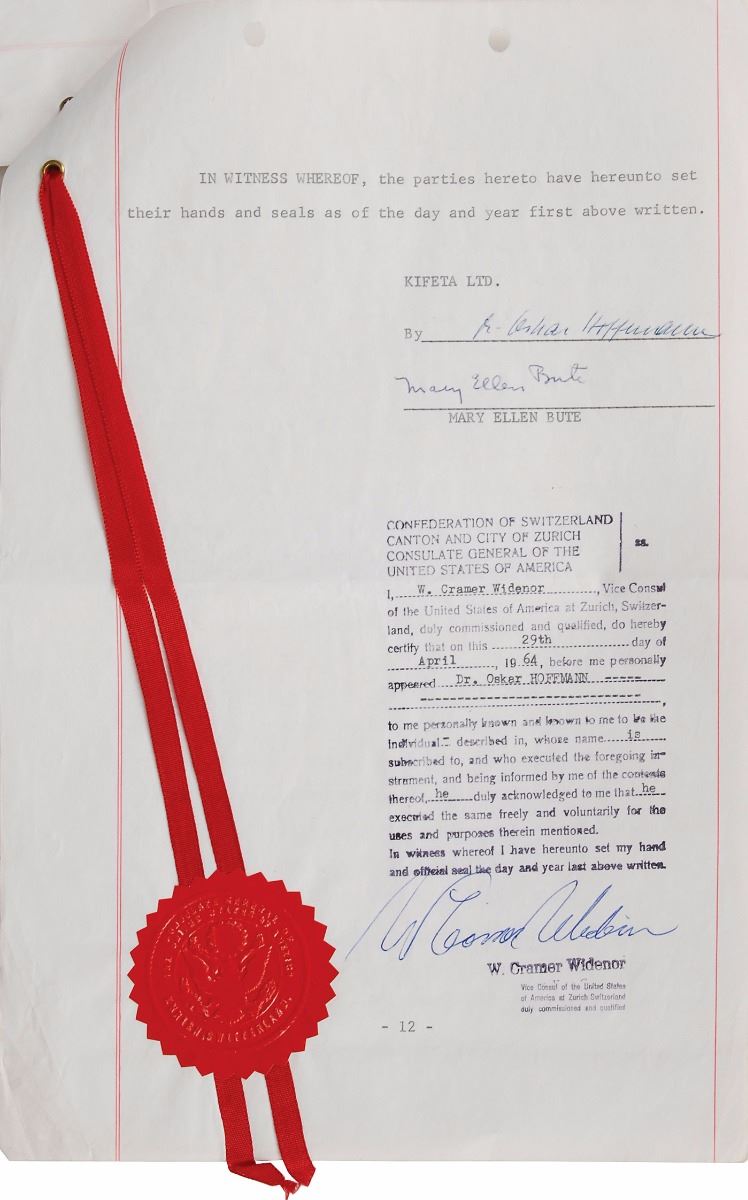 IN WITNESS WHEREOF, the parties hereto have hereunto set
their hands and seals as of the day and year first above written.
KIFETA LTD.
By Dr. Oskar Hoffmann
Mary Ellen Bute
MARY ELLEN BUTE
CONFEDERATION OF SWITZERLAND
CANTON AND CITY OF ZURICH
CONSULATE GENERAL OF THE
UNITED STATES OF AMERICA
ss.
I, W. Cramer Widenor, Vice Consul
of the United States of America at Zurich, Switzer-
land, duly commissioned and qualified, do hereby
certify that on this 29th day of
April, 1964, before me personally
appeared Dr. Oskar HOFFMANN -----
--------------------------------,
to me personally known and known to me to be the
individual.- described in, whose name is
subscribed to, and who executed the foregoing in-
strument, and being informed by me of the contents
thereof, he duly acknowledged to me that he
executed the same freely and voluntarily for the
uses and purposes therein mentioned.
In witness whereof I have hereunto set my hand
and official seal the day and year last above written.
W Cramer Widenor
W. Cramer Widenor
Vice Consul of the United States
of America at Zurich Switzerland
duly commissioned and qualified
- 12 -